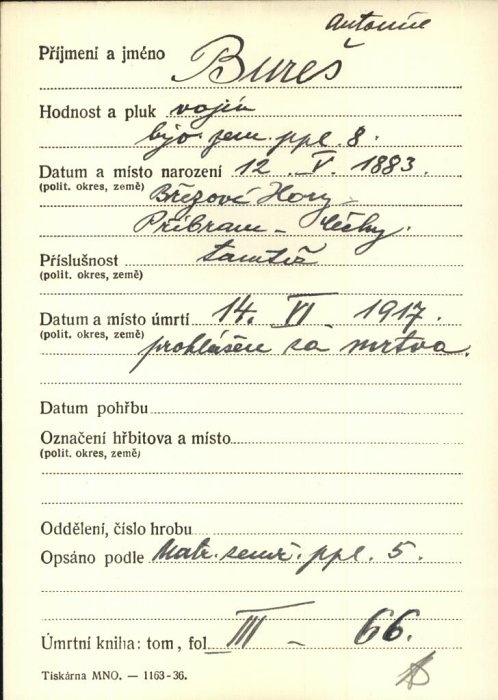 Antonín
Příjmení a jméno Bureš
Hodnost a pluk vojín
býv. zem. ppl. 8.
Datum a místo narození 12. V. 1883.
(polit. okres, země) Březové Hory -
Příbram - Čechy.
Příslušnost tamtéž
(polit. okres, země)
Datum a místo úmrtí 14. VI. 1917.
(polit. okres, země) prohlášen za mrtva.
Datum pohřbu
Označení hřbitova a místo
(polit. okres, země)
Oddělení, číslo hrobu
Opsáno podle Matr. zemř. ppl. 5.
Úmrtní kniha: tom, fol. III - 66.
Tiskárna MNO. — 1163-36.